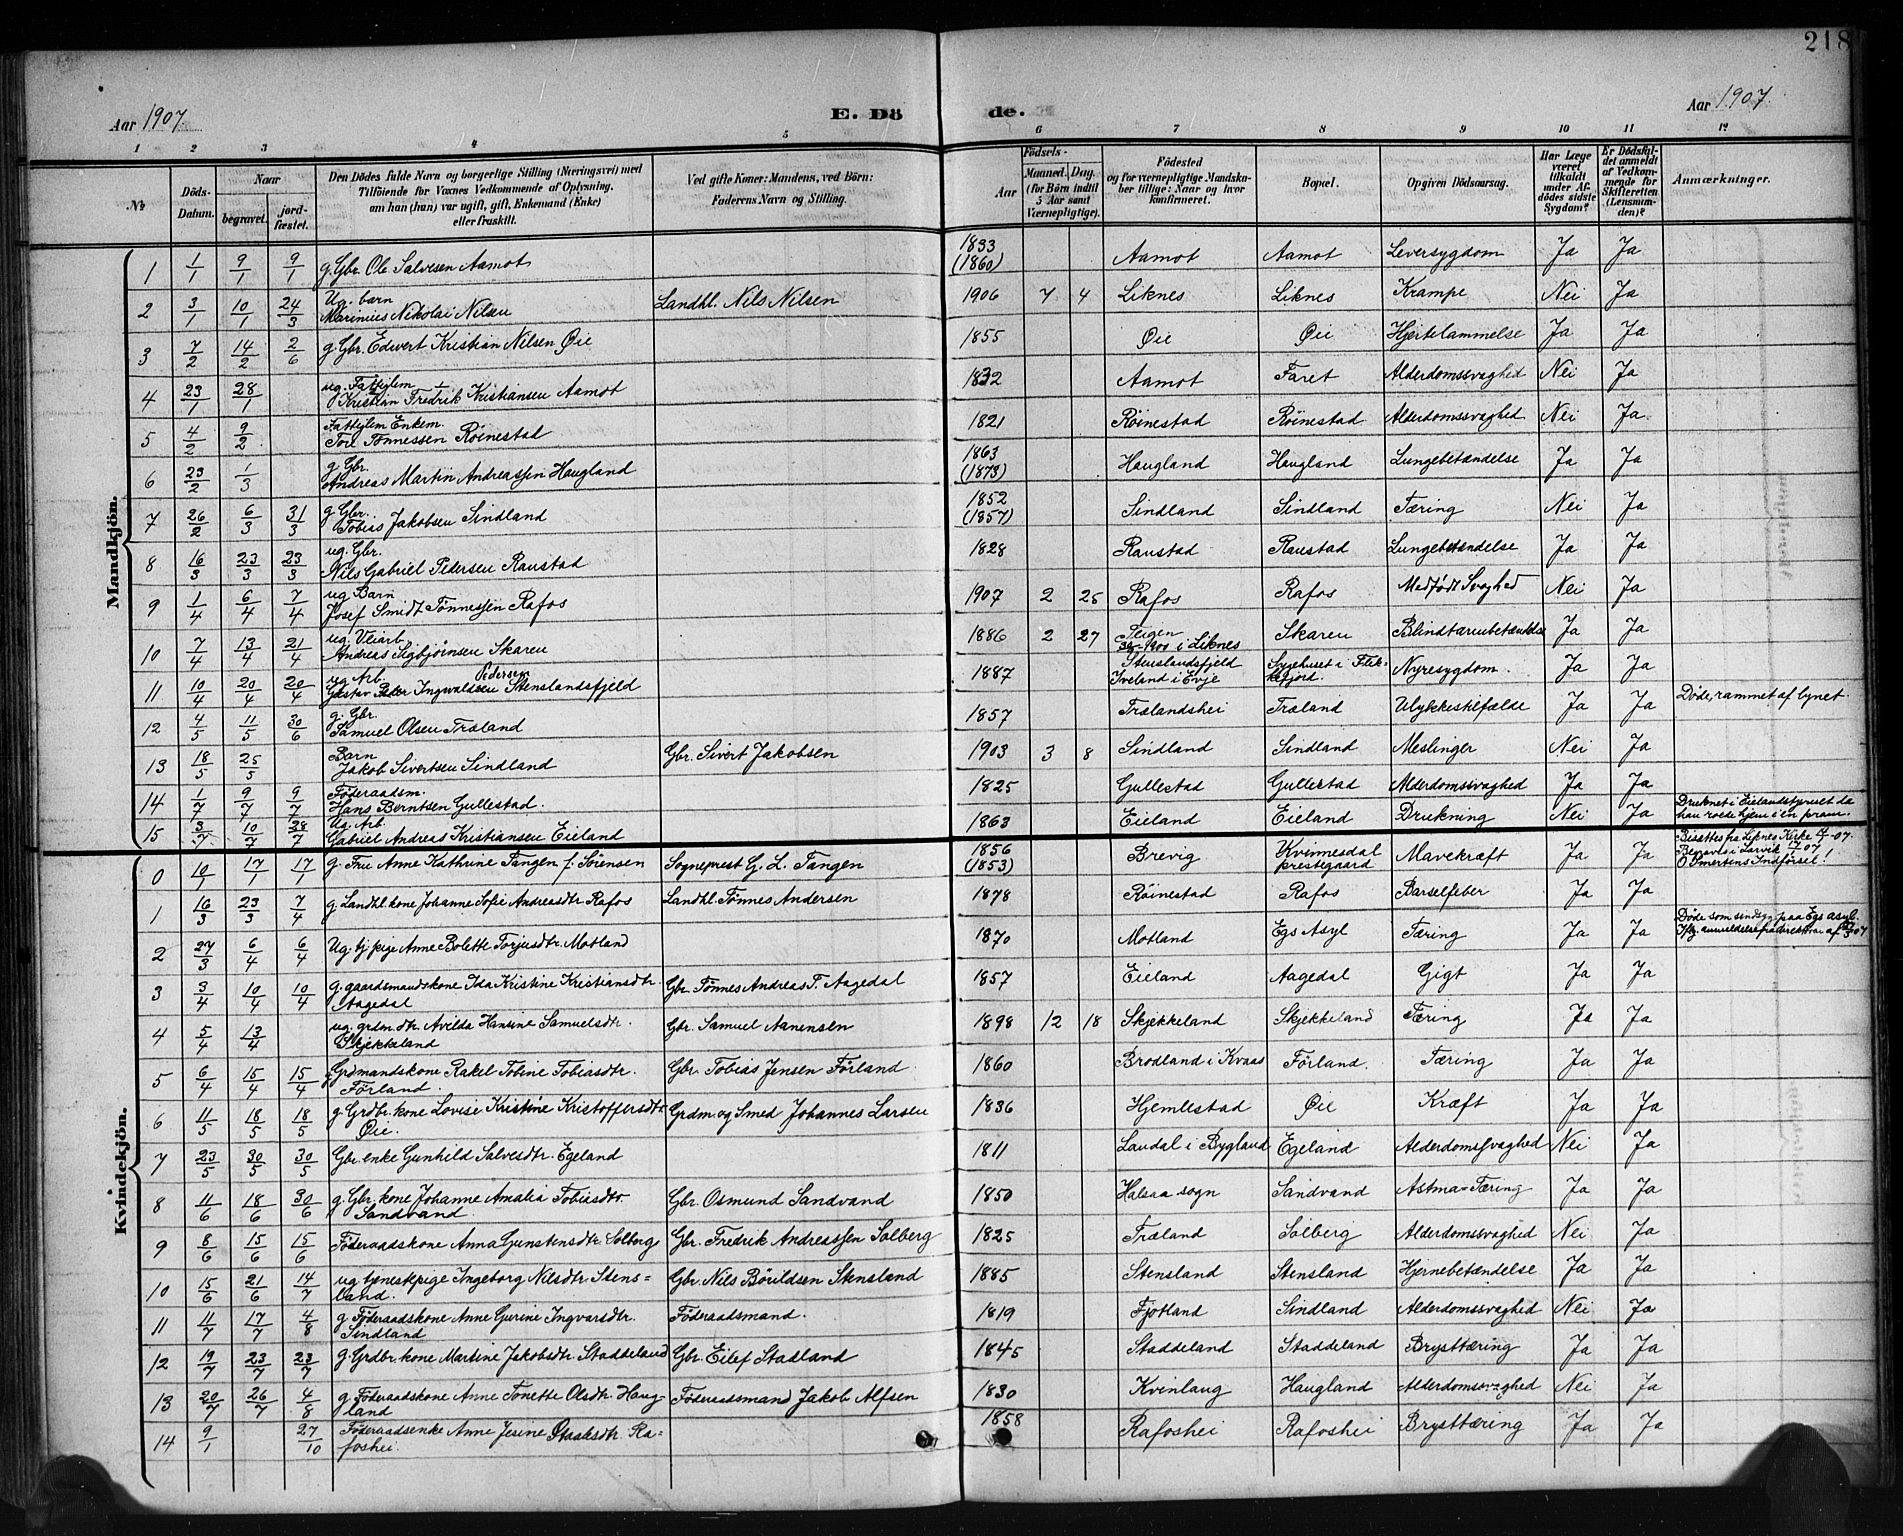 218
Aar 1907.
E. Dö
de.
Aar 1907.
1 2 3 4 5 6 7 8 9 10 11 12
№
Döds-Datum.
Naar begravet. jordfæstet.
Den Dödes fulde Navn og borgerlige Stilling (Næringsvei) med
Tilföiende for Voxnes Vedkommende af Oplysning,
om han (hun) var ugift, gift, Enkemand (Enke)
eller fraskilt.
Ved gifte Koner: Mandens, ved Börn:
Faderens Navn og Stilling.
Födsels-
Aar
Maaned. Dag.
(for Börn indtil
5 Aar samt
Værnepligtige).
Födested
og for værnepligtige Mandskaber tillige: Naar og hvor
konfirmeret.
Bopæl.
Opgiven Dödsaarsag.
Har Læge været tilkaldt under Afdödes sidste Sygdom?
Er Dödsfaldet anmeldt af Vedkommende for Skifteretten (Lensmanden)?
Anmærkninger.
Mandkjön.
1 1/1 9/1 9/1 g. Gbr. Ole Salvesen Aamot 1833 (1860) Aamot Aamot Leversygdom Ja Ja
2 3/1 10/1 24/3 Ug. barn Marinius Nikolai Nilsen Landhl. Nils Nilsen 1906 7 4 Liknes Liknes Krampe Nei Ja
3 7/2 14/2 2/6 g. Gbr. Edvert Kristian Nilsen Øie 1855 Øie Øie Hjertelammelse Ja Ja
4 23/1 28/1 ug. Fattiglem Kristian Fredrik Kristiansen Aamot 1832 Aamot Faret Alderdomssvaghed Nei Ja
5 4/2 9/2 Fattiglem Enkem. Tore Tønnessen Røinestad 1821 Røinestad Røinestad Alderdomssvaghed Nei Ja
6 23/2 1/3 g. Gbr. Andreas Martin Andreassen Haugland 1863 (1873) Haugland Haugland Lungebetændelse Ja Ja
7 26/2 6/3 31/3 g. Gbr. Tobias Jakobsen Sindland 1852 (1857) Sindland Sindland Tæring Nei Ja
8 16/3 23/3 23/3 ug. Gbr. Nils Gabriel Pedersen Raustad 1828 Raustad Raustad Lungebetændelse Ja Ja
9 1/4 6/4 7/4 ug. Barn Josef Smidt Tønnessen Rafos 1907 2 25 Rafos Rafos Medfødt Svaghed Nei Ja
10 7/4 13/4 21/4 ug. Veiarb. Andreas Sigbjørnsen Skaren 1886 2 27 Teigen 1900 i Liknes Skaren Blindtarmbetændelse Ja Ja
11 10/4 20/4 20/4 ug. Arb. Gustav Peder Ingwaldsen Pedersen Stenslandsfjeld 1887 Stenslandsfjeld Iveland i Evje Sygehuset i Flekkefjord. Nyresygdom. Ja Ja
12 4/5 11/5 30/6 g. Gbr. Samuel Olsen Træland 1857 Trælandshei Træland Ulykkestilfælde Ja Ja Døde, rammet af lynet.
13 18/5 25/5 Barn Jakob Sivertsen Sindland Gbr. Sivert Jakobsen 1903 3 8 Sindland Sindland Meslinger Nei Ja
14 1/7 9/7 9/7 Føderaadsm. Hans Berntsen Gullestad. 1825 Gullestad Gullestad Alderdomssvaghed Ja Ja
15 3/7 10/7 28/7 Ug. Arb. Gabriel Andreas Kristiansen Eieland 1863 Eieland Eieland Drukning Nei Ja Druknet i Eielandstjernet da han rodde hjem i en pram.
Kvindekjön.
0 10/1 17/1 17/1 g. Fru Anne Kathrine Tangen f. Sørensen Sogneprest G. L. Tangen 1856 (1853) Brevig Kvinnesdal prestegaard Mavekræft Ja Ja Bisattes fra Liknes Kirke -07. Begravet i Larvik 17/1 07 O Smertens Indførsel!
1 16/3 23/3 7/4 g. Landhl. kone Johanne Sofie Andreasdtr Rafos Landhl. Tønnes Andersen 1878 Røinestad Rafos Barselfeber Ja Ja
2 27/3 6/4 6/4 Ug. tj. pige Anne Bolette Torjusdtr. Motland 1870 Motland Egs Asyl Tæring Ja Ja Døde som sindssyg paa Egs asyl. Iflg. anmeldelse fra direktøren af 07
3 3/4 10/4 10/4 g. gaardsmandskone Ida Kristine Kristiansdtr. Aagedal Gbr. Tønnes Andreas T. Aagedal 1857 Eieland Aagedal Gigt Ja Ja
4 5/4 13/4 ug. grdm. dtr. Avilda Hansine Samuelsdtr. Skjekkeland Gbr. Samuel Aanensen 1898 12 18 Skjekkeland Skjekkeland Tæring Ja Ja
5 6/4 15/4 15/4 g. Grdmandskone Rakel Tobine Tobiasdtr. Førland. Gbr. Tobias Jensen Førland 1860 Brodland i Kvaas Førland. Tæring Ja Ja
6 11/5 18/5 18/5 g. Grdbr. kone Lovise Kristine Kristoffersdtr Øie. Grdm. og Smed Johannes Larsen 1836 Hjemlestad Øie Kræft Ja Ja
7 23/5 30/5 30/5 Gbr. enke Gunhild Salvesdtr. Egeland 1811 Laudal i Bygland Egeland Alderdomssvaghed Nei Ja
8 11/6 18/6 30/6 g. Gbr. kone Johanne Amalia Tobiasdtr. Sandvand. Gbr. Osmund Sandvand 1850 Halsaa sogn Sandvand Astma-Tæring Ja Ja
9 8/6 15/6 15/6 Føderaadskone Anna Gunstensdtr. Solberg Gbr. Fredrik Andreassen Solberg 1825 Træland Solberg Alderdomssvaghed Nei Ja
10 15/6 21/6 14/7 ug tjenestpige Ingeborg Nilsdtr Stens=land. Gbr. Nils Børildsen Stensland 1885 Stensland Stensland Hjernebetændelse Ja Ja
11 11/7 17/7 4/8 g Føderaadskone Anne Gurine Ingvarsdtr. Sindland Føderaadsmand. 1819 Fjotland Sindland Alderdomssvaghed Nei Ja
12 19/7 23/7 23/7 g. Grdbr. kone Martine Jakobsdtr. Staddeland Gbr. Eilef Stadland 1845 Staddeland Staddeland Brysttæring Ja Ja
13 20/7 26/7 4/8 g Føderaadskone Anne Tonette Olsdtr. Haug=land Føderaadsmand Jakob Alfsen 1830 Kvinlaug Haugland Alderdomssvaghed Nei Ja
14 9/1 27/10 Føderaadsenke Anne Jesine Staaksdtr. Ra=foshei. 1858 Rafoshei Rafoshei Brysttæring Ja Ja